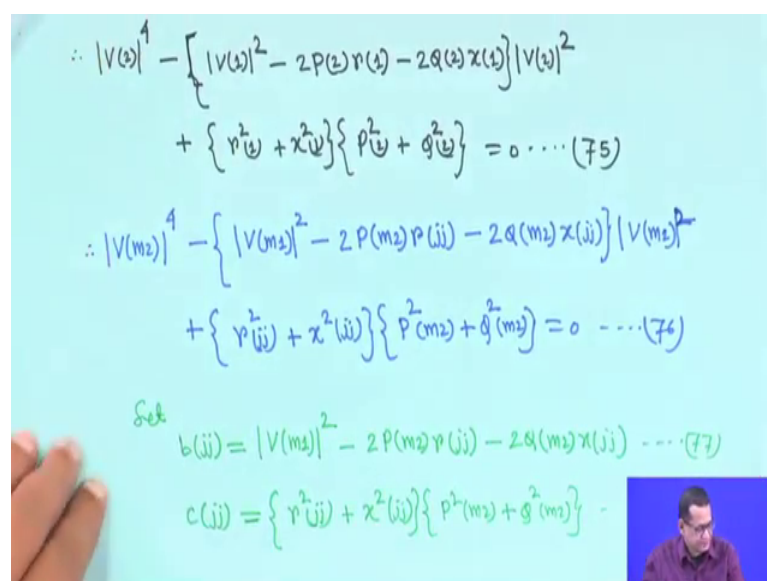 ∴ |V(2)|⁴ − [{|V(1)|² − 2P(2)r(1) − 2Q(2)x(1)}|V(2)|²
+ {r²(1) + x²(1)}{P²(2) + Q²(2)} = 0 ····(75)
∴ |V(m2)|⁴ − {|V(m1)|² − 2P(m2)r(jj) − 2Q(m2)x(jj)}|V(m2)|²
+ {r²(jj) + x²(jj)}{P²(m2) + Q²(m2)} = 0 ----(76)
Let
b(jj) = |V(m1)|² − 2P(m2)r(jj) − 2Q(m2)x(jj) ----(77)
c(jj) = {r²(jj) + x²(jj)}{P²(m2) + Q²(m2)} -